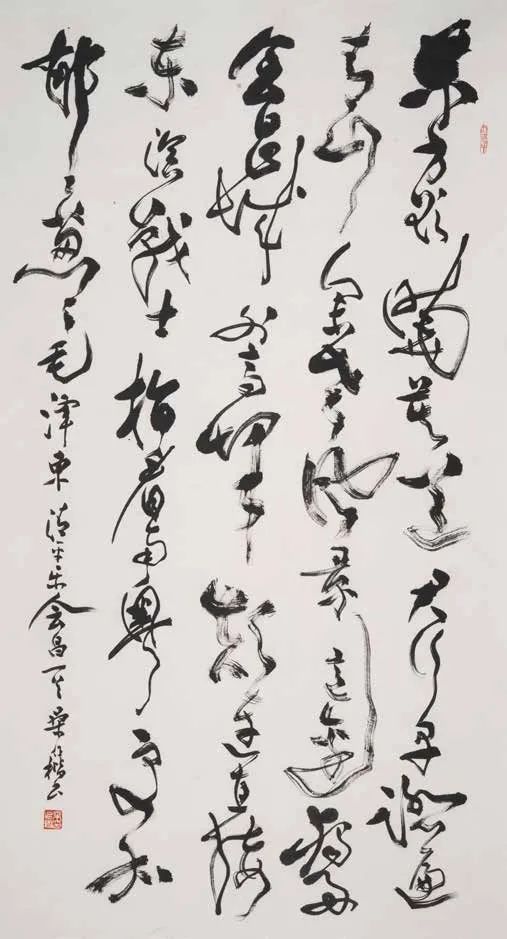 东方欲晓莫道君行早踏遍
青山人未老风景这边独好
会昌城外高峰颠连直接
东溟战士指看南粤更加
郁郁葱葱毛泽东清平乐会昌一首桑作楷